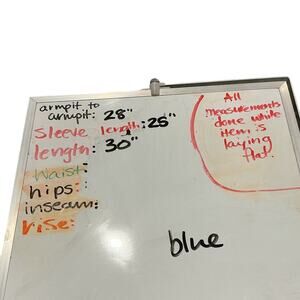 armpit to
armpit: 28"
Sleeve length: 25"
length: 30"
Waist:
hips:
inseam:
rise:
All
measurements
done while
item is
laying
flat.
blue